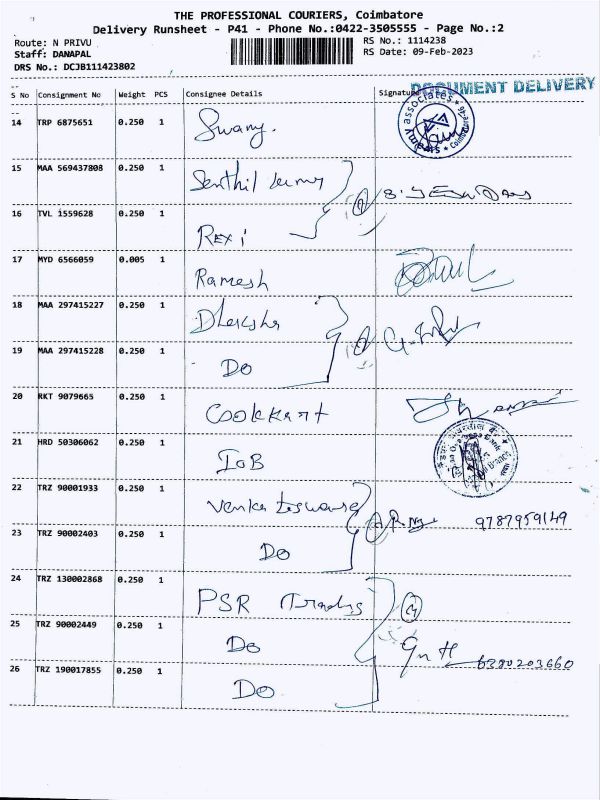 THE PROFESSIONAL COURIERS, Coimbatore
Delivery Runsheet - P41 - Phone No.:0422-3505555 - Page No.:2
Route: N PRIVU
RS No.: 1114238
Staff: DANAPAL
RS Date: 09-Feb-2023
DRS No.: DCJB111423802
DOCUMENT DELIVERY
S No Consignment No Weight PCS Consignee Details Signature
14 TRP 6875651 0.250 1 Swamy.
associates Coimbatore
15 MAA 569437808 0.250 1 Senthil kumar
16 TVL 1559628 0.250 1 Rexi
17 MYD 6566059 0.005 1 Ramesh
18 MAA 297415227 0.250 1
19 MAA 297415228 0.250 1 Do
20 RKT 9079665 0.250 1 Cookkart
21 HRD 50306062 0.250 1 IOB
22 TRZ 90001933 0.250 1 Venkateswara
9787959149
23 TRZ 90002403 0.250 1 Do
24 TRZ 130002868 0.250 1 PSR Trading
25 TRZ 90002449 0.250 1 Do
6380203660
26 TRZ 190017855 0.250 1 Do